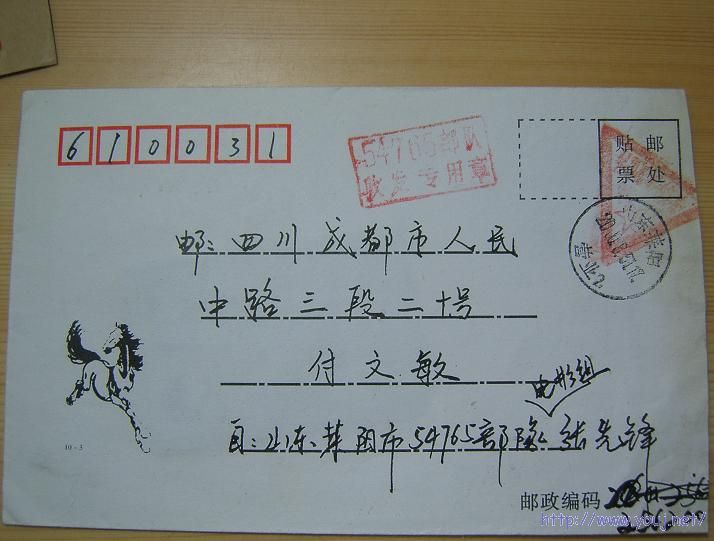 610031
54765部队
收发专用章
贴邮
票处
邮:四川成都市人民
中路三段二十号
付文敏
电影组
自:山东莱阳市54765部队张先锋
10-3
邮政编码
http://www.youj.net/